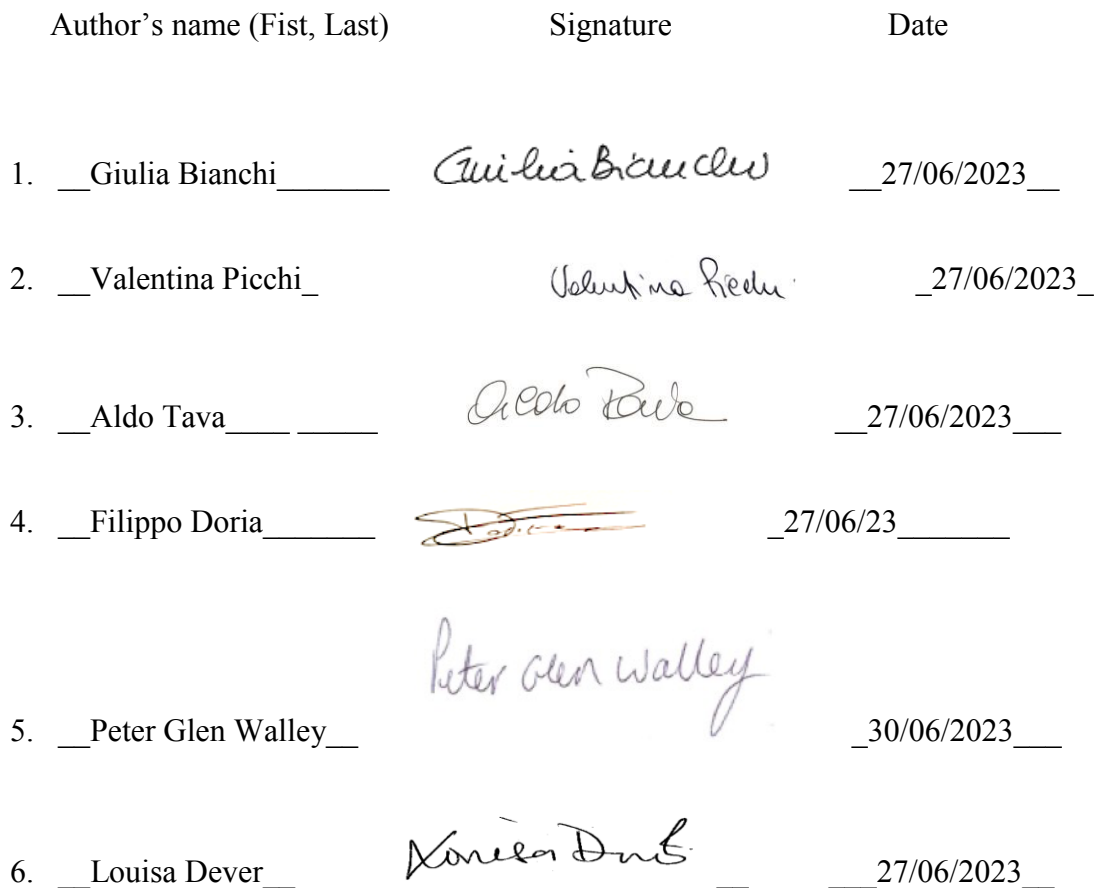 Author’s name (Fist, Last) Signature Date
1. __Giulia Bianchi_______ Giulia Bianchi __27/06/2023__
2. __Valentina Picchi_ Valentina Picchi _27/06/2023_
3. __Aldo Tava____ _____ Aldo Tava __27/06/2023___
4. __Filippo Doria_______ _27/06/23_______
Peter Glen Walley
5. __Peter Glen Walley__ _30/06/2023___
6. __Louisa Dever__ Louisa __ ___27/06/2023__